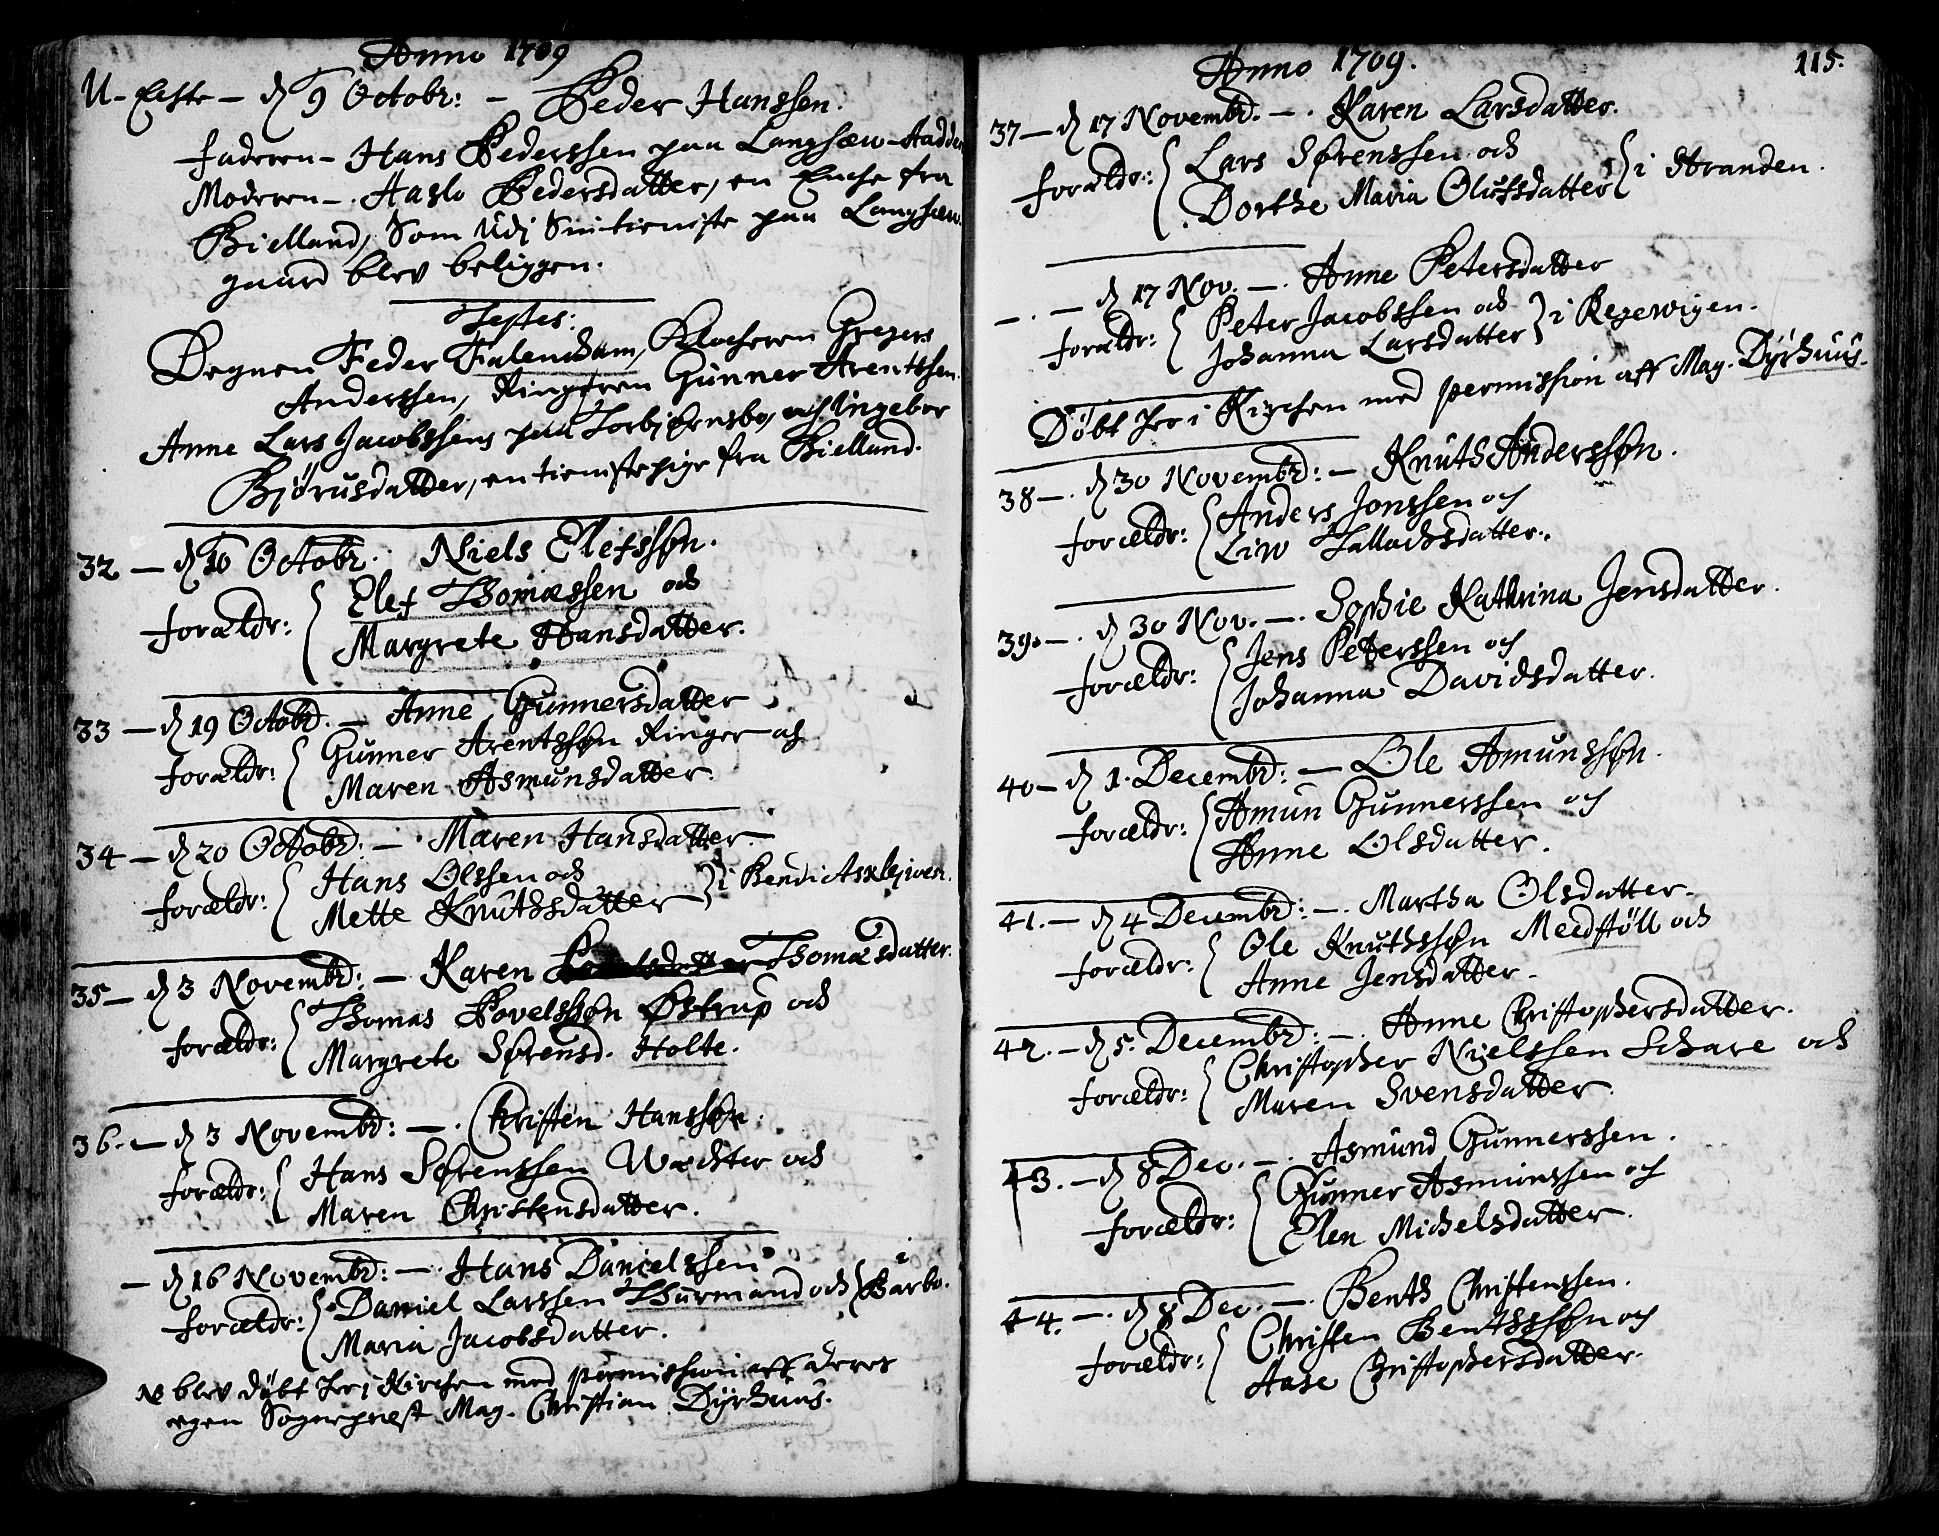 Anno 1709
U-Echte - d 9 Octobr: - Peder Hanssen.
faderen - Hans Pederssen paa Langsæw-Aadden
Moderen -. Aaslo Pedersdatter, en Enche fra
Bielland, Som Udj Sin tieniste paa Langsæw
gaard blev beliggen.
Testes:
Degnen Feder Falencham, Klocheren Gregers
Anderssen, Ringeren Gunner Arentssen
Anne Lars Jacobssens paa Torbjørnsbo, och Ingebor
Bjørusdatter, en tienistepige fra Bielland.
32 - d 10 Octobr. Niels Elefssøn.
forældr: Elef Thomæssen och
Margrete Hansdatter.
33 - d 19 Octobr. - Anne Gunnersdatter
forældr: Gunner Arentssøn Ringer och
Maren Asmunsdatter.
34 - d 20 Octobr: - Maren Hansdatter.
forældr: Hans Olssen och
Mette Knuthsdatter i Bendi Asklejwen.
35 - d 3 Novembr: - Karen Thomæsdatter.
forældr: Thomas Povelssøn Østrup och
Margrete Sørensd. Holte.
36. - d 3 Novembr: -. Christen Hanssøn.
forældr: Hans Sørenssen Wachter och
Maren Christensdatter.
- d 16 Novembr: -. Hans Danielssen
forældr: Daniel Larssen Thurmand och i Barbo.
Maria Jacobsdatter.
NB blev døbt her i Kirchen med permission aff deres
egen Sogneprest Mag. Christian Dyrhuus.
Anno 1709.
115.
37 - d 17 Novembr. -. Karen Larsdatter.
forældr: Lars Sørenssen och
Dorthe Maria Olufsdatter i Stranden.
-. - d 17 Nov. -. Anne Petersdatter
forældr: Peter Jacobssen och
Johanna Larsdatter i Regewigen.
Døbt her i Kirchen med permission aff Mag. Dyrhuus.
38 -. d 30 Novembr: - Knuth Anderssøn.
forældr: Anders Jonssen och
Liw Tallachsdatter.
39. -. d 30 Nov. -. Sophie Kathrina Jensdatter.
forældr: Jens Peterssen och
Johanna Davidsdatter.
40 - d 1. Decembr: - Ole Amunssøn.
forældr: Amun Gunnerssen och
Anne Olsdatter.
41. - d 4 Decembr: -. Martha Olsdatter.
forældr: Ole Knuthssøn Meedstøll och
Anne Jensdatter.
42. - d 5. Decembr: -. Anne Christophersdatter.
forældr: Christopher Nielssen Schare och
Maren Svensdatter.
43. - d 8 Dec. -. Asmund Gunnerssen.
forældr: Gunner Asmunssen och
Elen Michelsdatter.
44. -. d 8 Dec. -. Benth Christenssen.
forældr: Christen Benthssøn och
Aase Christophersdatter.